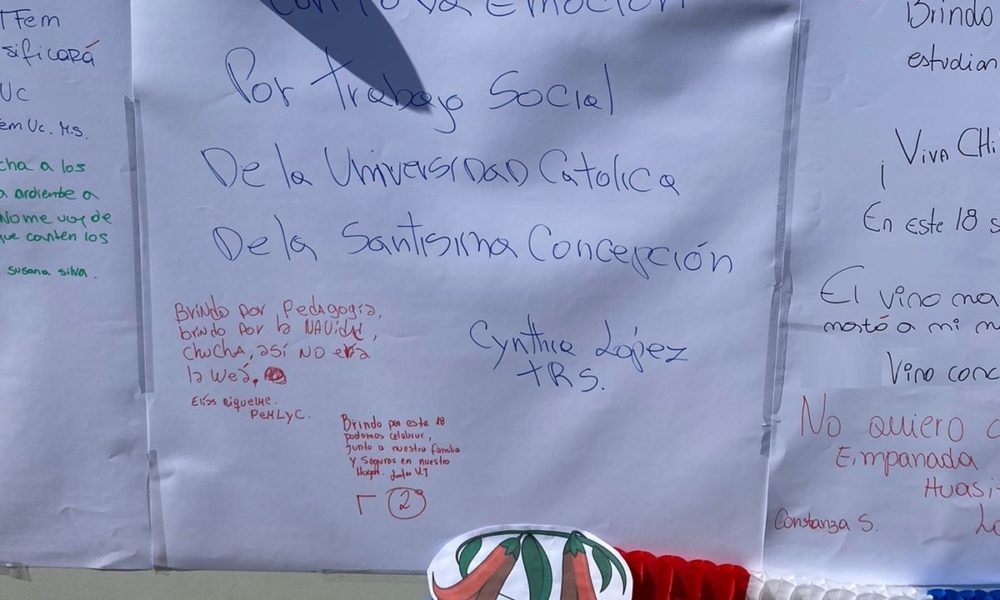 TFem
sificará
UC
em Uc. M.S.
cha a los
a ardiente a
No me voy de
que canten los
susana silva.
con toda Emoción
Por trabajo Social
De la Universidad Catolica
De la Santisima Concepción
Cynthia López
TRS.
Brindo por Pedagogía,
brindo por la NAVidad,
chucha, así No era
la weá.
Elías Riquelme.
PeHLyC.
Brindo por este 18
podamos celebrar,
Junto a nuestra familia
y seguros en nuestro
Hogar.
2°
Brindo
estudian
¡Viva CHi
En este 18 s
El vino ma
mató a mi m
Vino conc
No quiero
Empanada
Huasi
Constanza S.